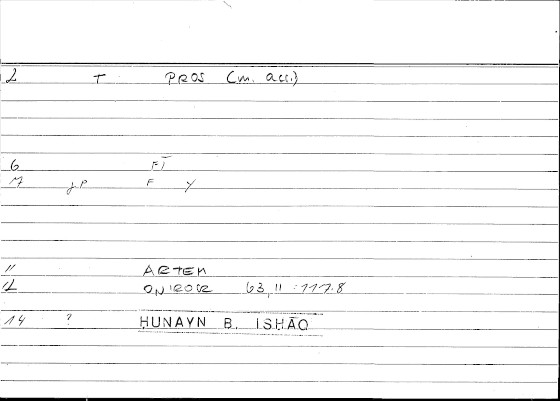 2 T PROS (m. acc.)
6 ET
7 JP F Y
11 ARTEM
12 ONIROCR 63,11 : 117.8
14 ? HUNAYN B. ISHĀQ